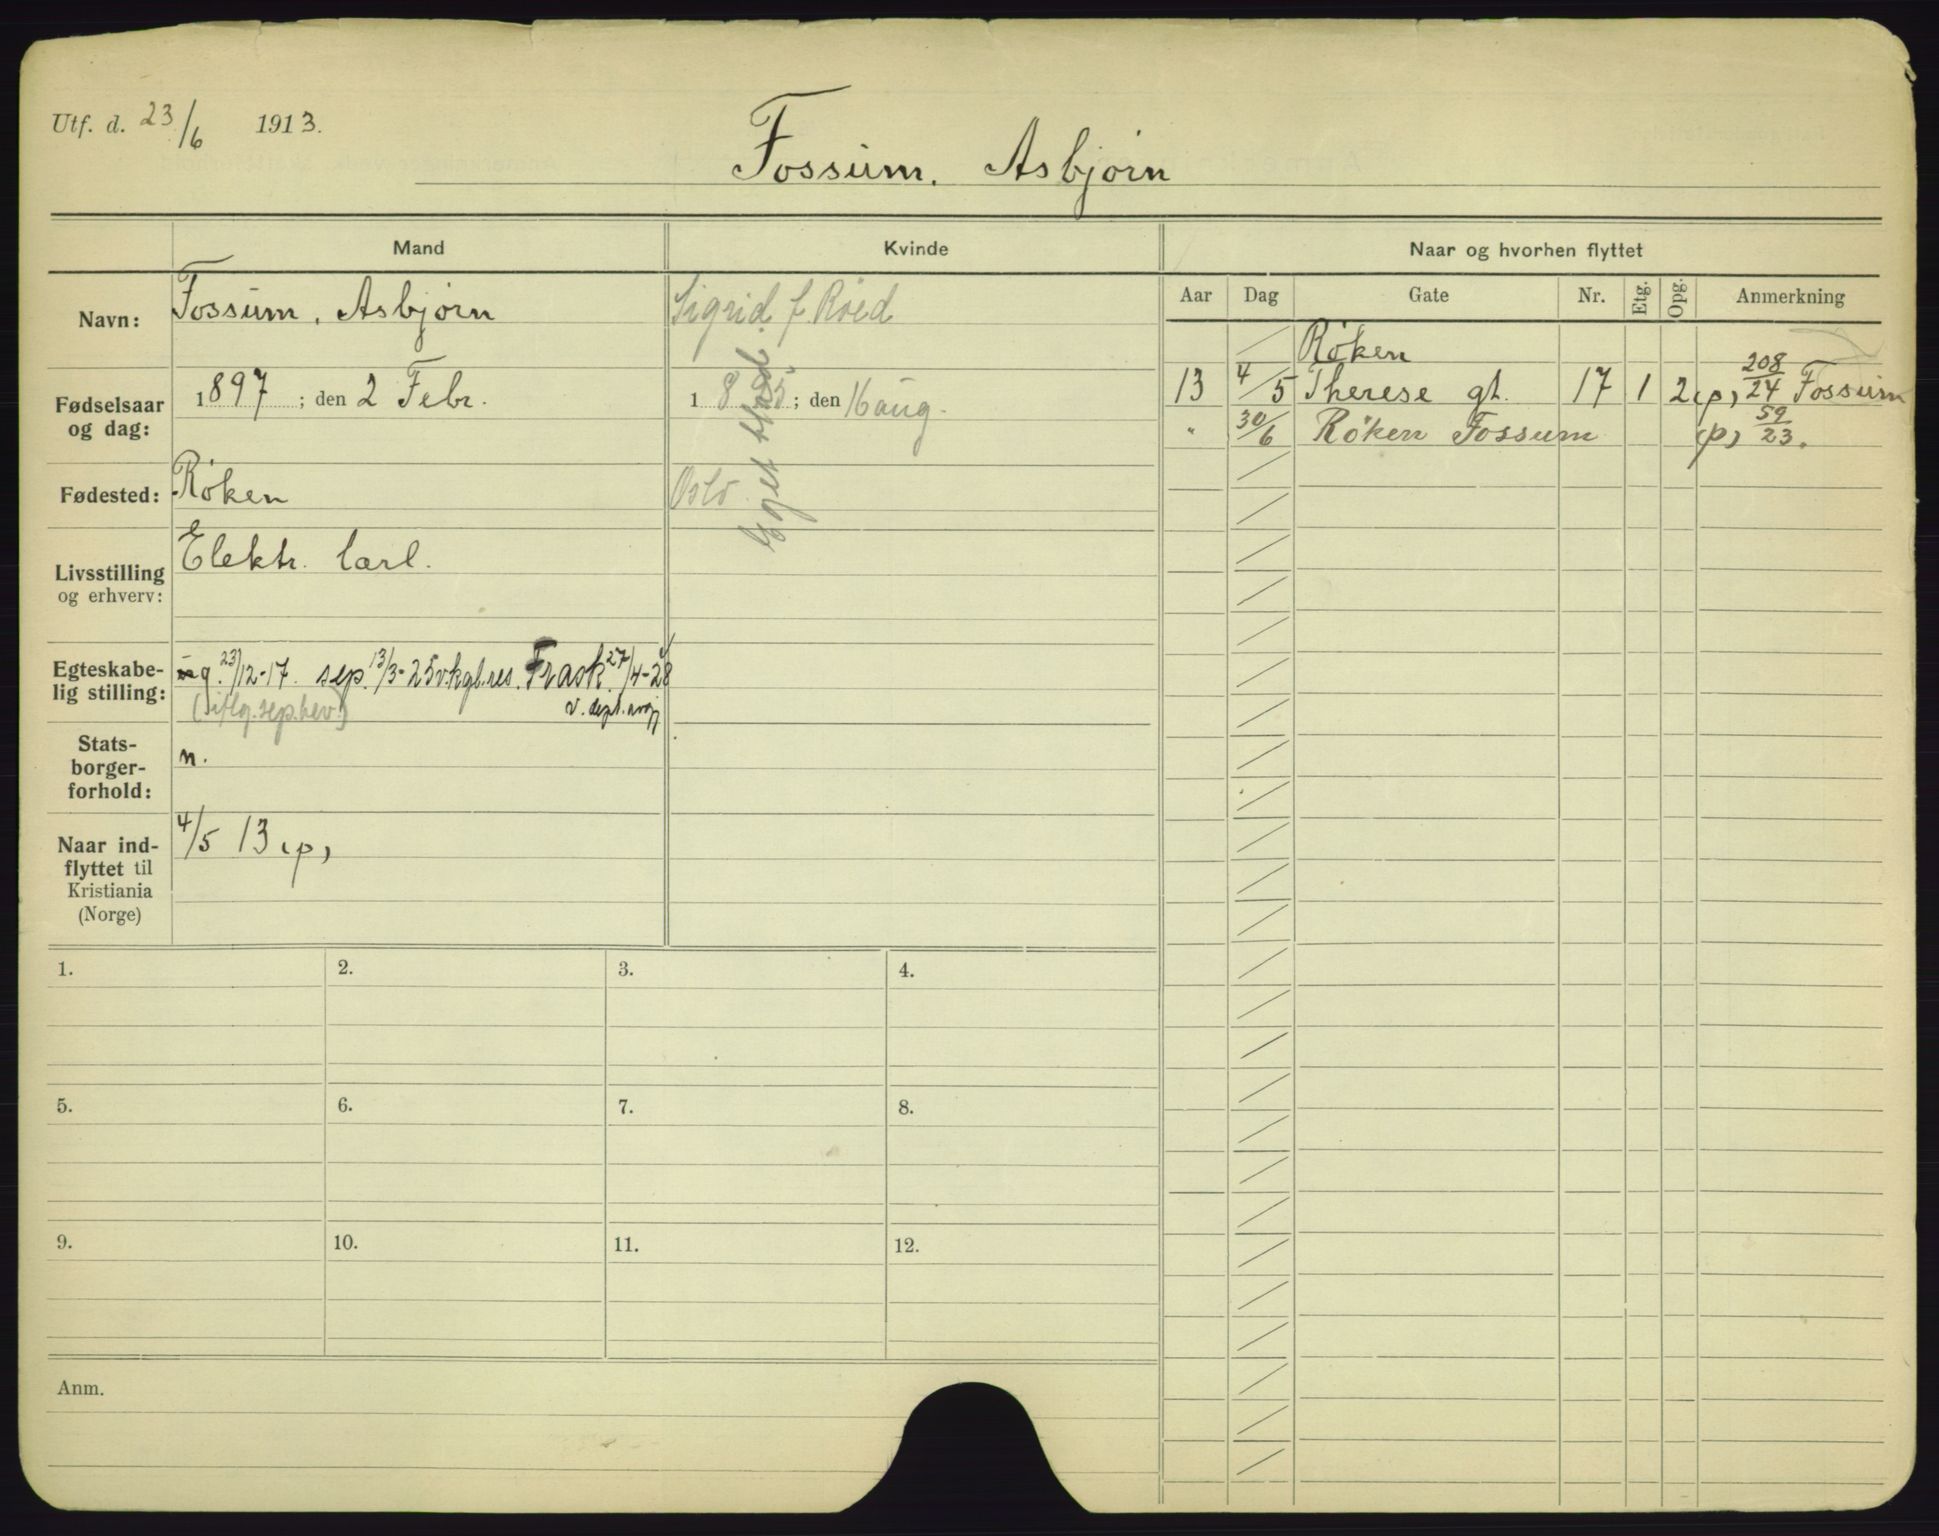 Utf. d. 23/6 1913.
Fossum, Asbjørn
Mand
Kvinde
Naar og hvorhen flyttet
Navn:
Fossum, Asbjørn
Sigrid f. Røed
Fødselsaar og dag:
1897; den 2 Febr.
18 5; den 16 aug.
Eget blad
Fødested:
Røken
Oslo
Livsstilling og erhverv:
Elektr. lærl.
Egteskabelig stilling:
g. 23/12-17. sep. 13/3-25 v. kgl. res. Frask. 27/4-28
(iflg. sep. bev.)
v. dept.
Statsborgerforhold:
n.
Naar indflyttet til Kristiania (Norge)
4/5 13 (p)
Aar Dag Gate Nr. Etg. Opg. Anmerkning
Røken
13 4/5 Therese gt. 17 1 2 (p) 208/24 Fossum
" 30/6 Røken Fossum (p) 59/23.
1. 2. 3. 4.
5. 6. 7. 8.
9. 10. 11. 12.
Anm.